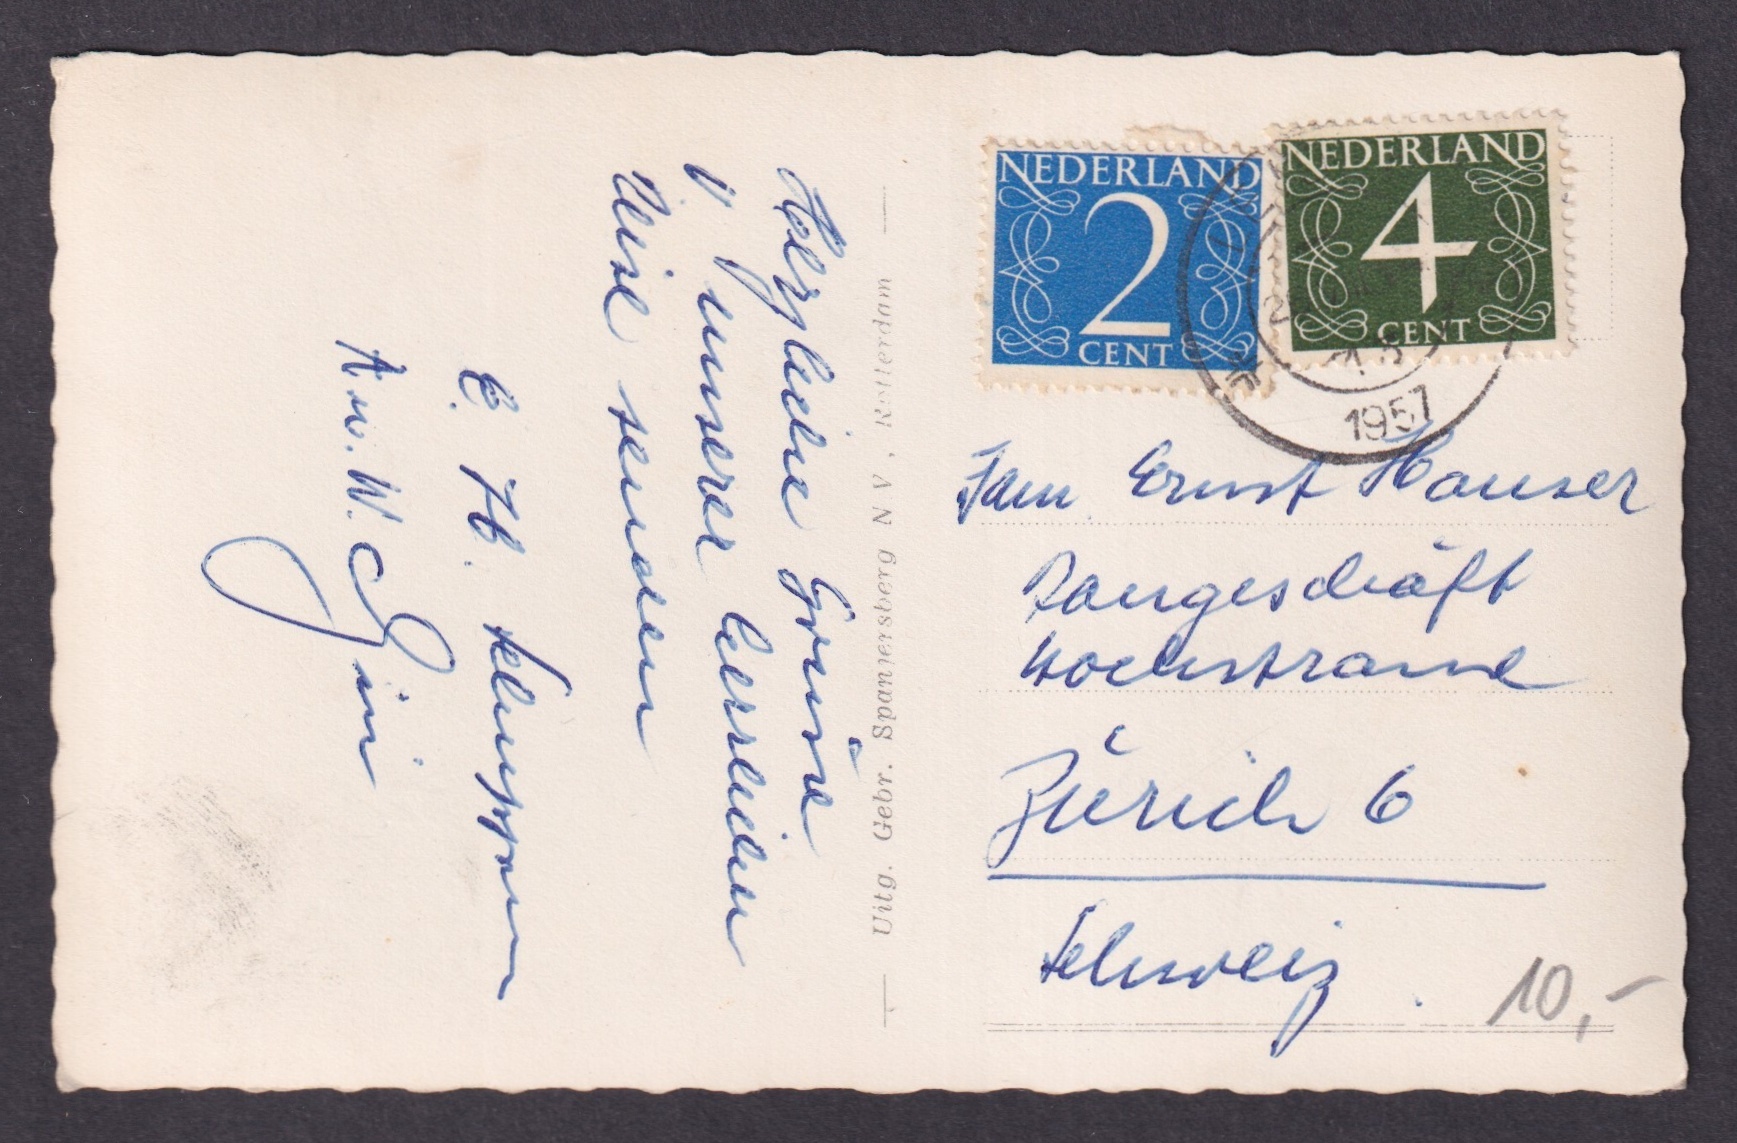 Herzliche Grüsse
v. unserer
Reise senden
E. H.
A. u. W.
Uitg. Gebr. Spanjersberg N.V., Rotterdam
NEDERLAND
2
CENT
NEDERLAND
4
CENT
1957
Fam. Ernst Hauser
Baugeschäft
Hochstrasse
Zürich 6
Schweiz
10,-